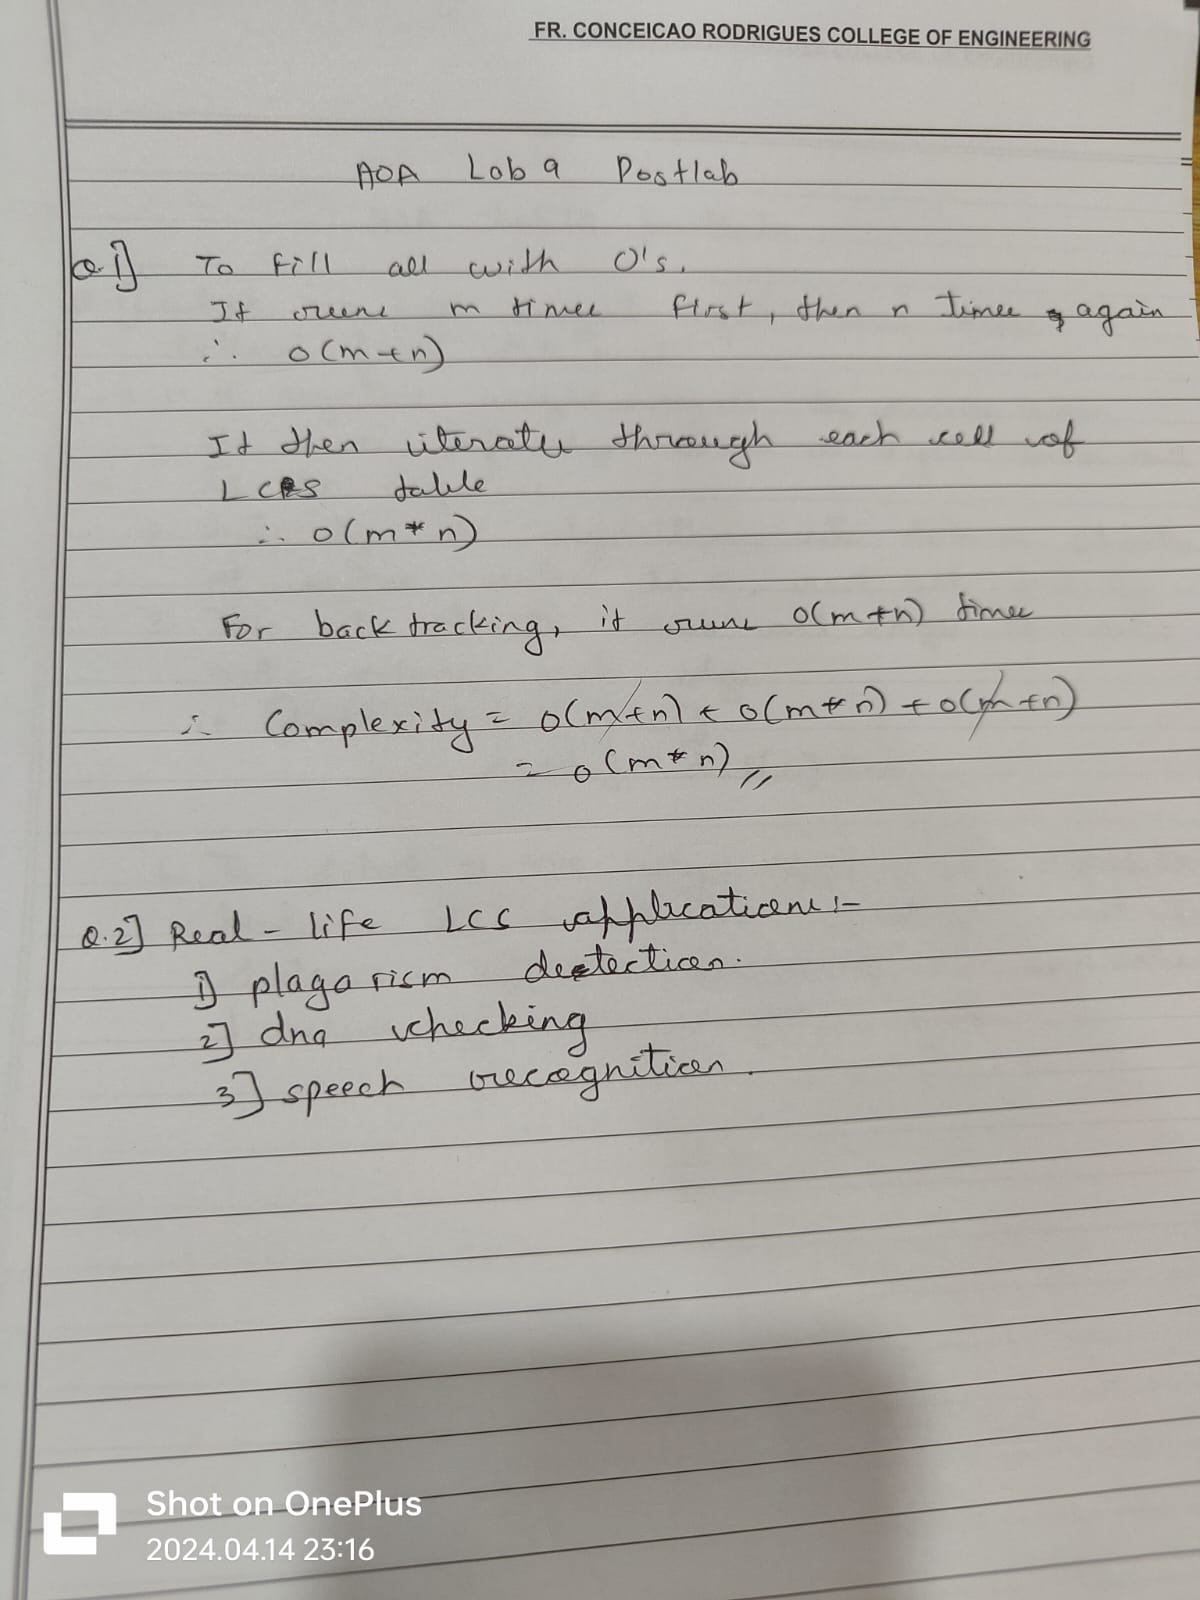 FR. CONCEICAO RODRIGUES COLLEGE OF ENGINEERING
AOA Lab 9 Postlab
Q.1] To fill all with 0's.
It runs m times first, then n times again
∴ O(m+n)
It then iterates through each cell of
LCS table
∴ O(m*n)
For backtracking, it runs O(m+n) times
∴ Complexity = O(m+n) + O(m*n) + O(m+n)
= O(m*n) //
Q.2] Real-life LCS applications:-
1] plagarism detection.
2] dna checking
3] speech recognition.
Shot on OnePlus
2024.04.14 23:16